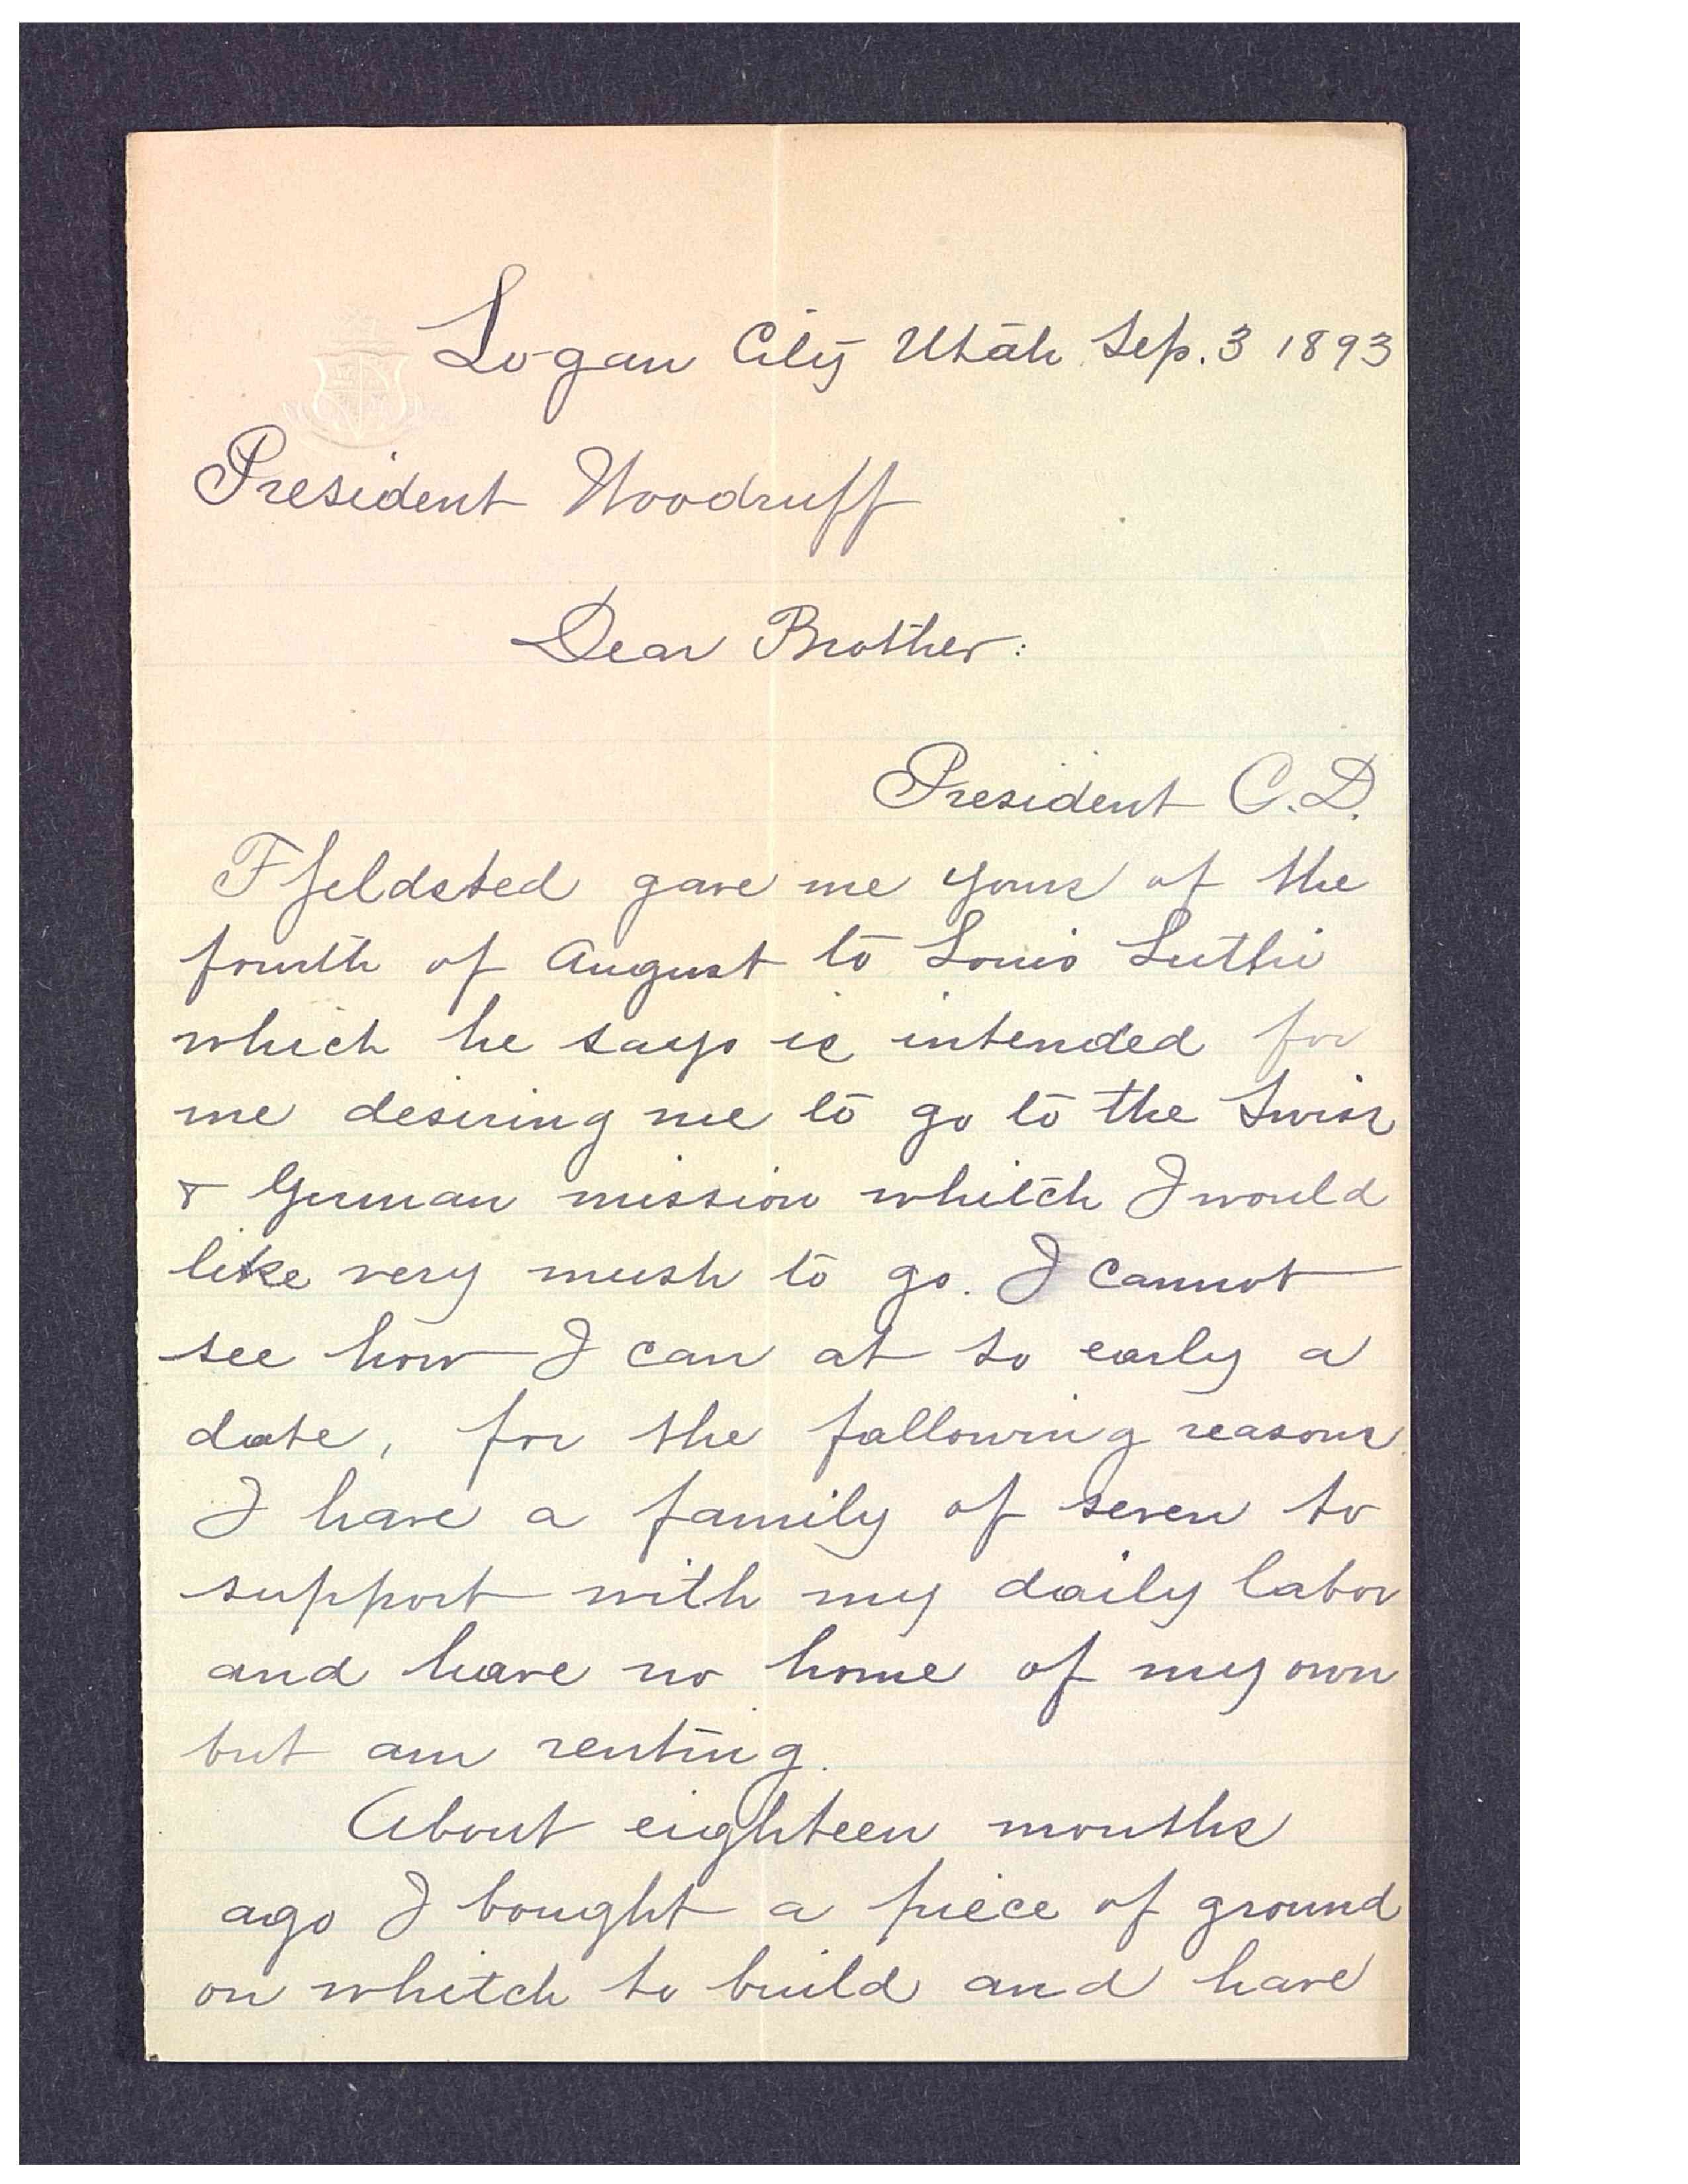 Logan City Utah Sep. 3 1893
President Woodruff
Dear Brother:
President C. D.
Fjeldsted gave me yours of the
fourth of August to Louis Luthi
which he says is intended for
me desiring me to go to the Swiss
& German mission whitch I would
like very mush to go. I cannot
see how I can at so early a
date, for the fallowing reasons
I have a family of seven to
support with my daily labor
and have no home of my own
but am renting.
About eighteen months
ago I bought a piece of ground
on whitch to build and have